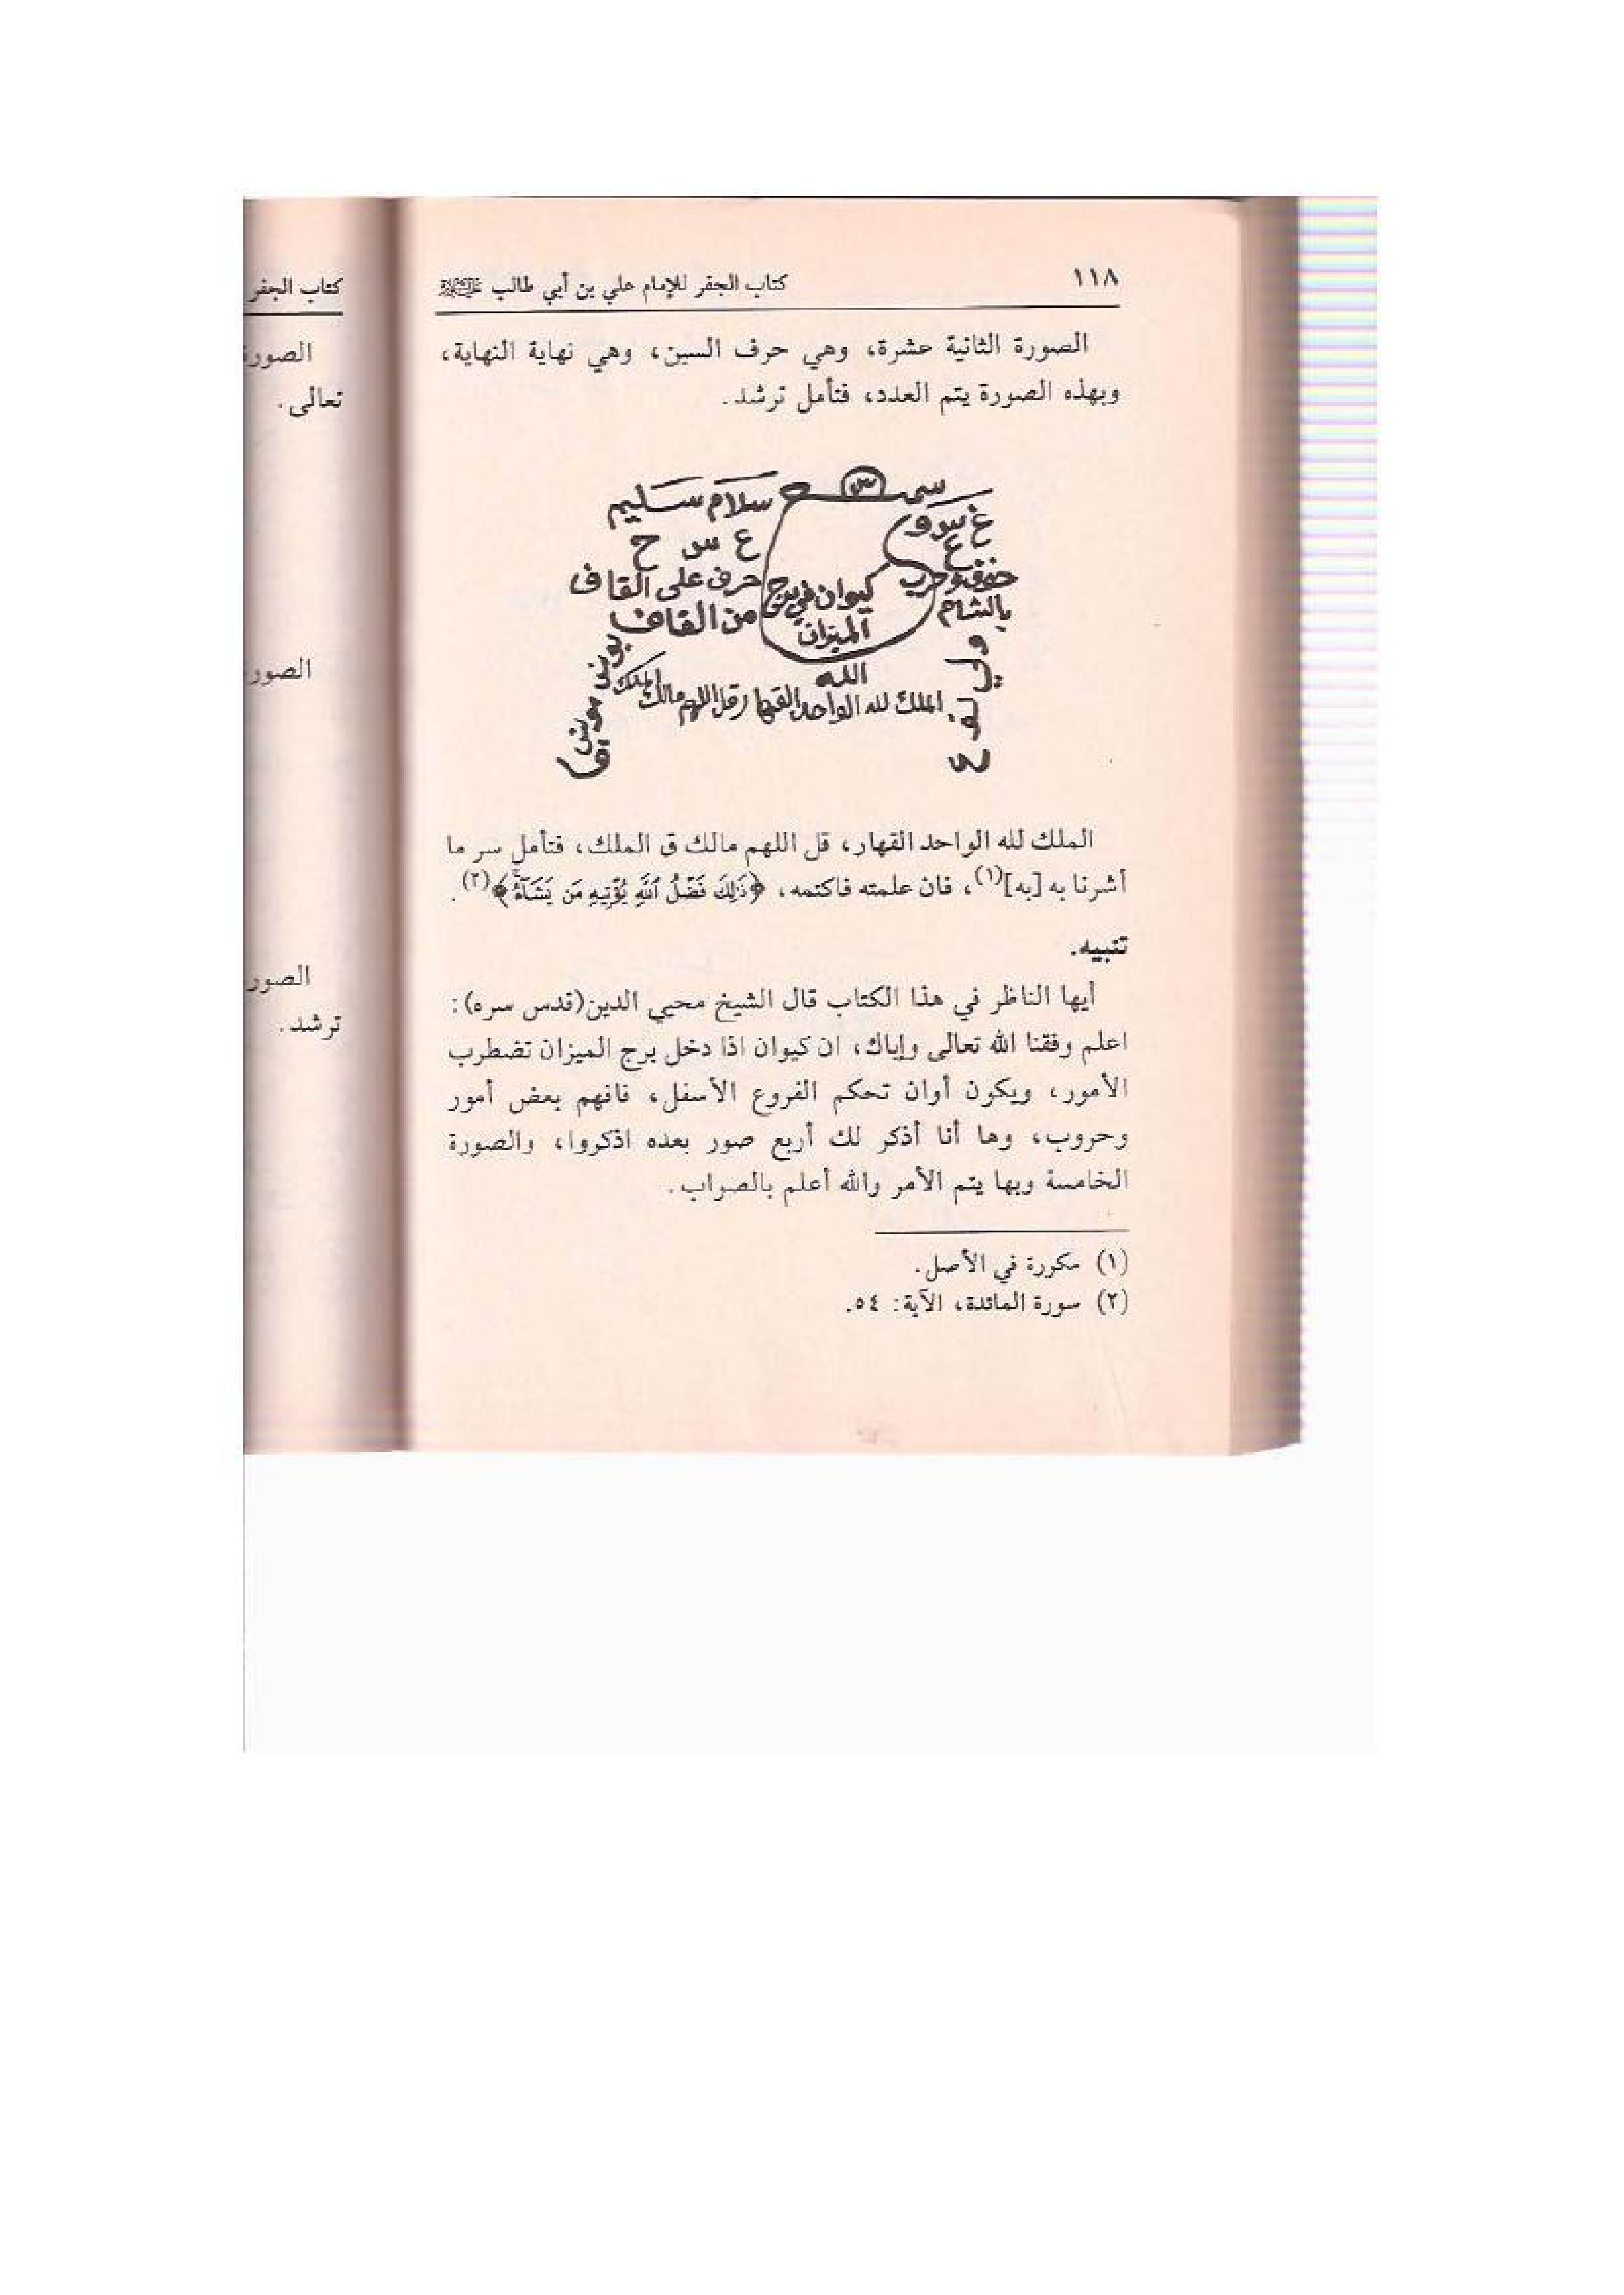 ١١٨
كتاب الجفر للإمام علي بن أبي طالب
الصورة الثانية عشرة، وهي حرف السين، وهي نهاية النهاية،
وبهذه الصورة يتم العدد، فتأمل ترشد.
سلام سليم
ع س ح
حرف على القاف
من القاف
كيوان في برج
الميزان
بالشام
الله
الملك لله الواحد القهار قل اللهم مالك الملك
الملك لله الواحد القهار، قل اللهم مالك ق الملك، فتأمل سر ما
أشرنا به [به](١)، فان علمته فاكتمه، ﴿ذَٰلِكَ فَضْلُ ٱللَّهِ يُؤْتِيهِ مَن يَشَآءُ﴾(٢).
تنبيه.
أيها الناظر في هذا الكتاب قال الشيخ محيي الدين(قدس سره):
اعلم وفقنا الله تعالى وإياك، ان كيوان اذا دخل برج الميزان تضطرب
الأمور، ويكون أوان تحكم الفروع الأسفل، فافهم بعض أمور
وحروب، وها أنا أذكر لك أربع صور بعده اذكروا، والصورة
الخامسة وبها يتم الأمر والله أعلم بالصواب.
(١) مكررة في الأصل.
(٢) سورة المائدة، الآية: ٥٤.
كتاب الجفر
الصورة
تعالى.
الصور
الصور
ترشد.